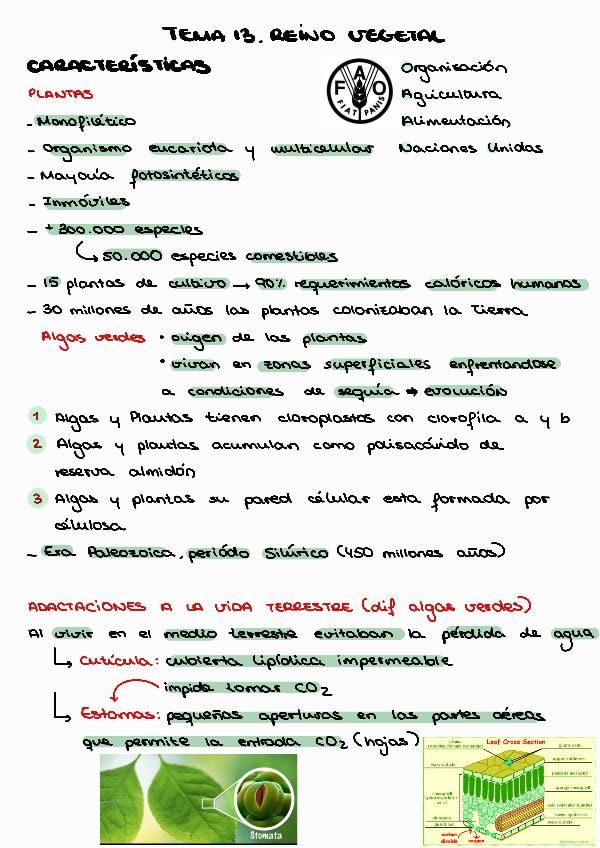 TEMA 13. REINO VEGETAL
CARACTERÍSTICAS
FAO
FIAT PANIS
Organización
Agricultura
Alimentación
Naciones Unidas
PLANTAS
- Monofilético
- Organismo eucariota y multicelular
- Mayoría fotosintéticos
- Inmóviles
- + 300.000 especies
↳ 50.000 especies comestibles
- 15 plantas de cultivo → 90% requerimientos calóricos humanos
- 30 millones de años las plantas colonizaban la Tierra
Algas verdes • origen de las plantas
• vivan en zonas superficiales enfrentandose
a condiciones de sequía → evolución
1 Algas y Plantas tienen cloroplastos con clorofila a y b
2 Algas y plantas acumulan como polisacárido de
reserva almidón
3 Algas y plantas su pared célular esta formada por
célulosa
- Era Paleozoica, periódo Silúrico (450 millones años)
ADACTACIONES A LA VIDA TERRESTRE (dif algas verdes)
Al vivir en el medio terrestre evitaban la pérdida de agua
↳ Cutícula: cubierta lipídica impermeable
impide tomar CO2
↳ Estomas: pequeñas aperturas en las partes aéreas
que permite la entrada CO2 (hojas)
Stomata
Leaf Cross Section
stoma
(opening for gas exchange)
guard cells
waxy cuticle
upper epidermis
palisade mesophyll
mesophyll
(photosynthetic
cells)
spongy mesophyll
vein (vascular bundle)
air space
guard cell
lower epidermis
waxy cuticle
carbon
dioxide
oxygen